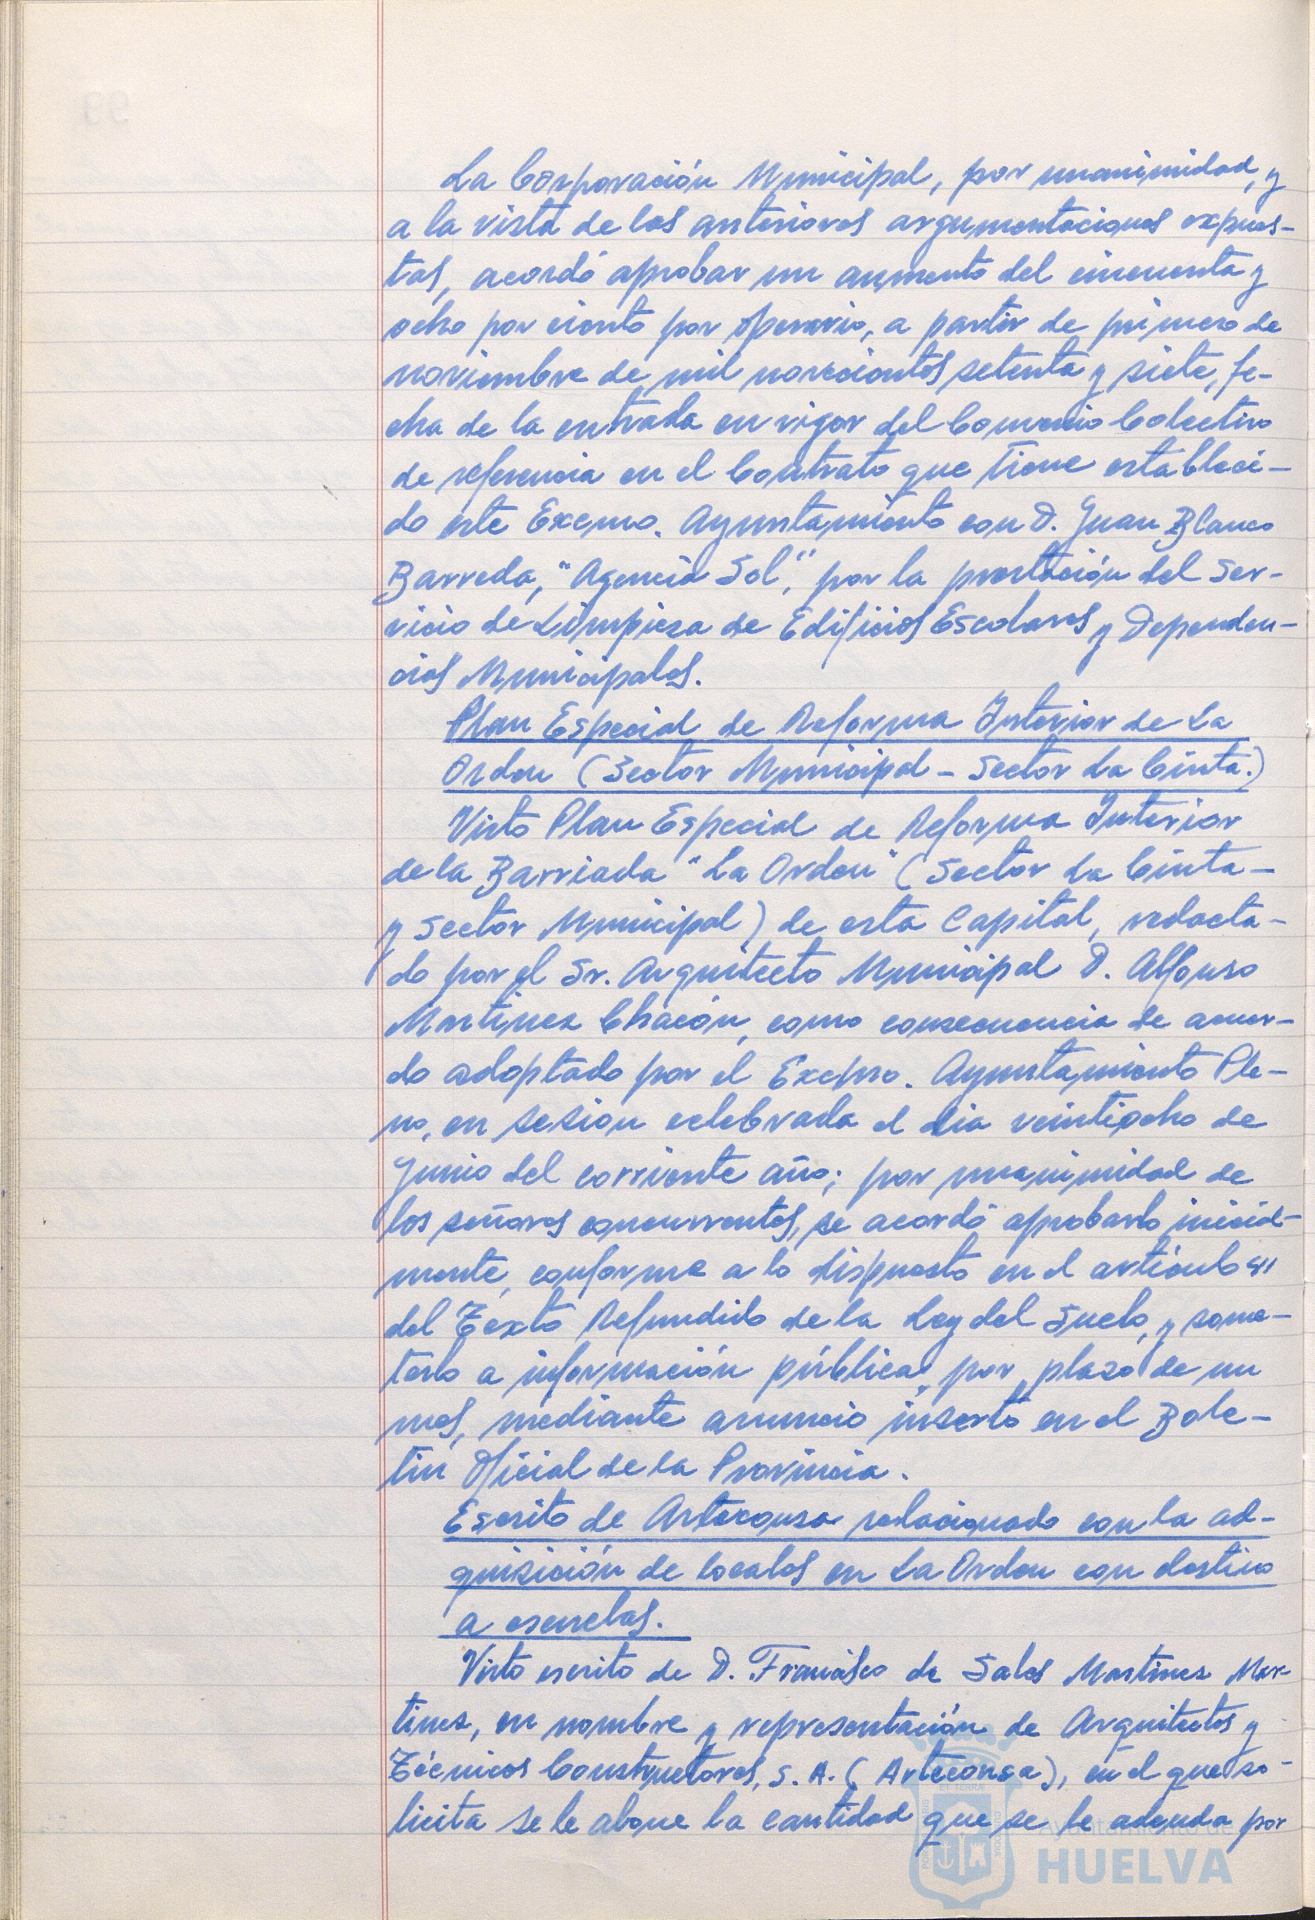 La Corporación Municipal, por unanimidad, y
a la vista de las anteriores argumentaciones expues-
tas, acordó aprobar un aumento del cincuenta y
ocho por ciento por operario, a partir de primero de
noviembre de mil novecientos setenta y siete, fe-
cha de la entrada en vigor del Convenio Colectivo
de referencia en el Contrato que tiene estableci-
do este Excmo. Ayuntamiento con D. Juan Blanco
Barreda, "Agencia Sol", por la prestación del Ser-
vicio de Limpieza de Edificios Escolares y Dependen-
cias Municipales.
Plan Especial de Reforma Interior de La
Orden (Sector Municipal - Sector La Cinta.)
Visto Plan Especial de Reforma Interior
de la Barriada "La Orden" (Sector La Cinta-
y Sector Municipal) de esta Capital, redacta-
do por el Sr. Arquitecto Municipal D. Alfonso
Martinez Chacón, como consecuencia de acuer-
do adoptado por el Excmo. Ayuntamiento Ple-
no, en sesion celebrada el dia veintiocho de
Junio del corriente año; por unanimidad de
los señores concurrentes, se acordó aprobarlo inicial-
mente, conforme a lo dispuesto en el artículo 41
del Texto Refundido de la Ley del Suelo, y some-
terlo a información pública, por plazo de un
mes, mediante anuncio inserto en el Bole-
tin Oficial de la Provincia.
Escrito de Arteconsa relacionado con la ad-
quisición de locales en La Orden con destino
a escuelas.
Visto escrito de D. Francisco de Sales Martinez Mar
tinez, en nombre y representación de Arquitectos y
Técnicos Constructores, S. A. (Arteconsa), en el que so-
licita se le abone la cantidad que se le adeuda por
Ayuntamiento de
HUELVA